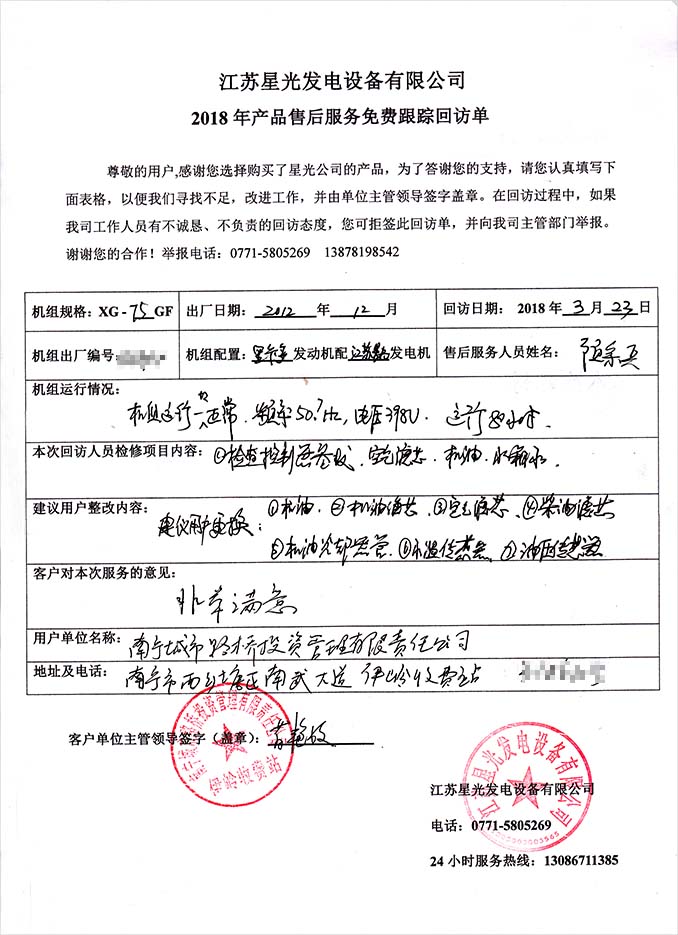 江苏星光发电设备有限公司
2018 年产品售后服务免费跟踪回访单
尊敬的用户,感谢您选择购买了星光公司的产品，为了答谢您的支持，请您认真填写下
面表格，以便我们寻找不足，改进工作，并由单位主管领导签字盖章。在回访过程中，如果
我司工作人员有不诚恳、不负责的回访态度，您可拒签此回访单，并向我司主管部门举报。
谢谢您的合作！举报电话：0771-5805269 13878198542
机组规格：XG - 75 GF 出厂日期：2012 年 12 月 回访日期： 2018 年 3 月 23 日
机组出厂编号: 机组配置： 发动机配 发电机 售后服务人员姓名：
机组运行情况：
机组运行一切正常．频率50.7Hz，电压398V．运行80小时．
本次回访人员检修项目内容：①检查控制器参数．空气滤芯．机油．水箱水．
建议用户整改内容： ①机油．②机油滤芯．③空气滤芯．④柴油滤芯
建议用户更换：
⑤机油冷却器管．⑥水温传感器．⑦油压传感器
客户对本次服务的意见：
非常满意
用户单位名称：南宁城市路桥投资管理有限责任公司
地址及电话：南宁市西乡塘区南武大道 伊岭收费站
客户单位主管领导签字（盖章）：
南宁城市路桥投资管理有限责任公司
伊岭收费站
江苏星光发电设备有限公司
江苏星光发电设备有限公司
电话：0771-5805269
24 小时服务热线：13086711385